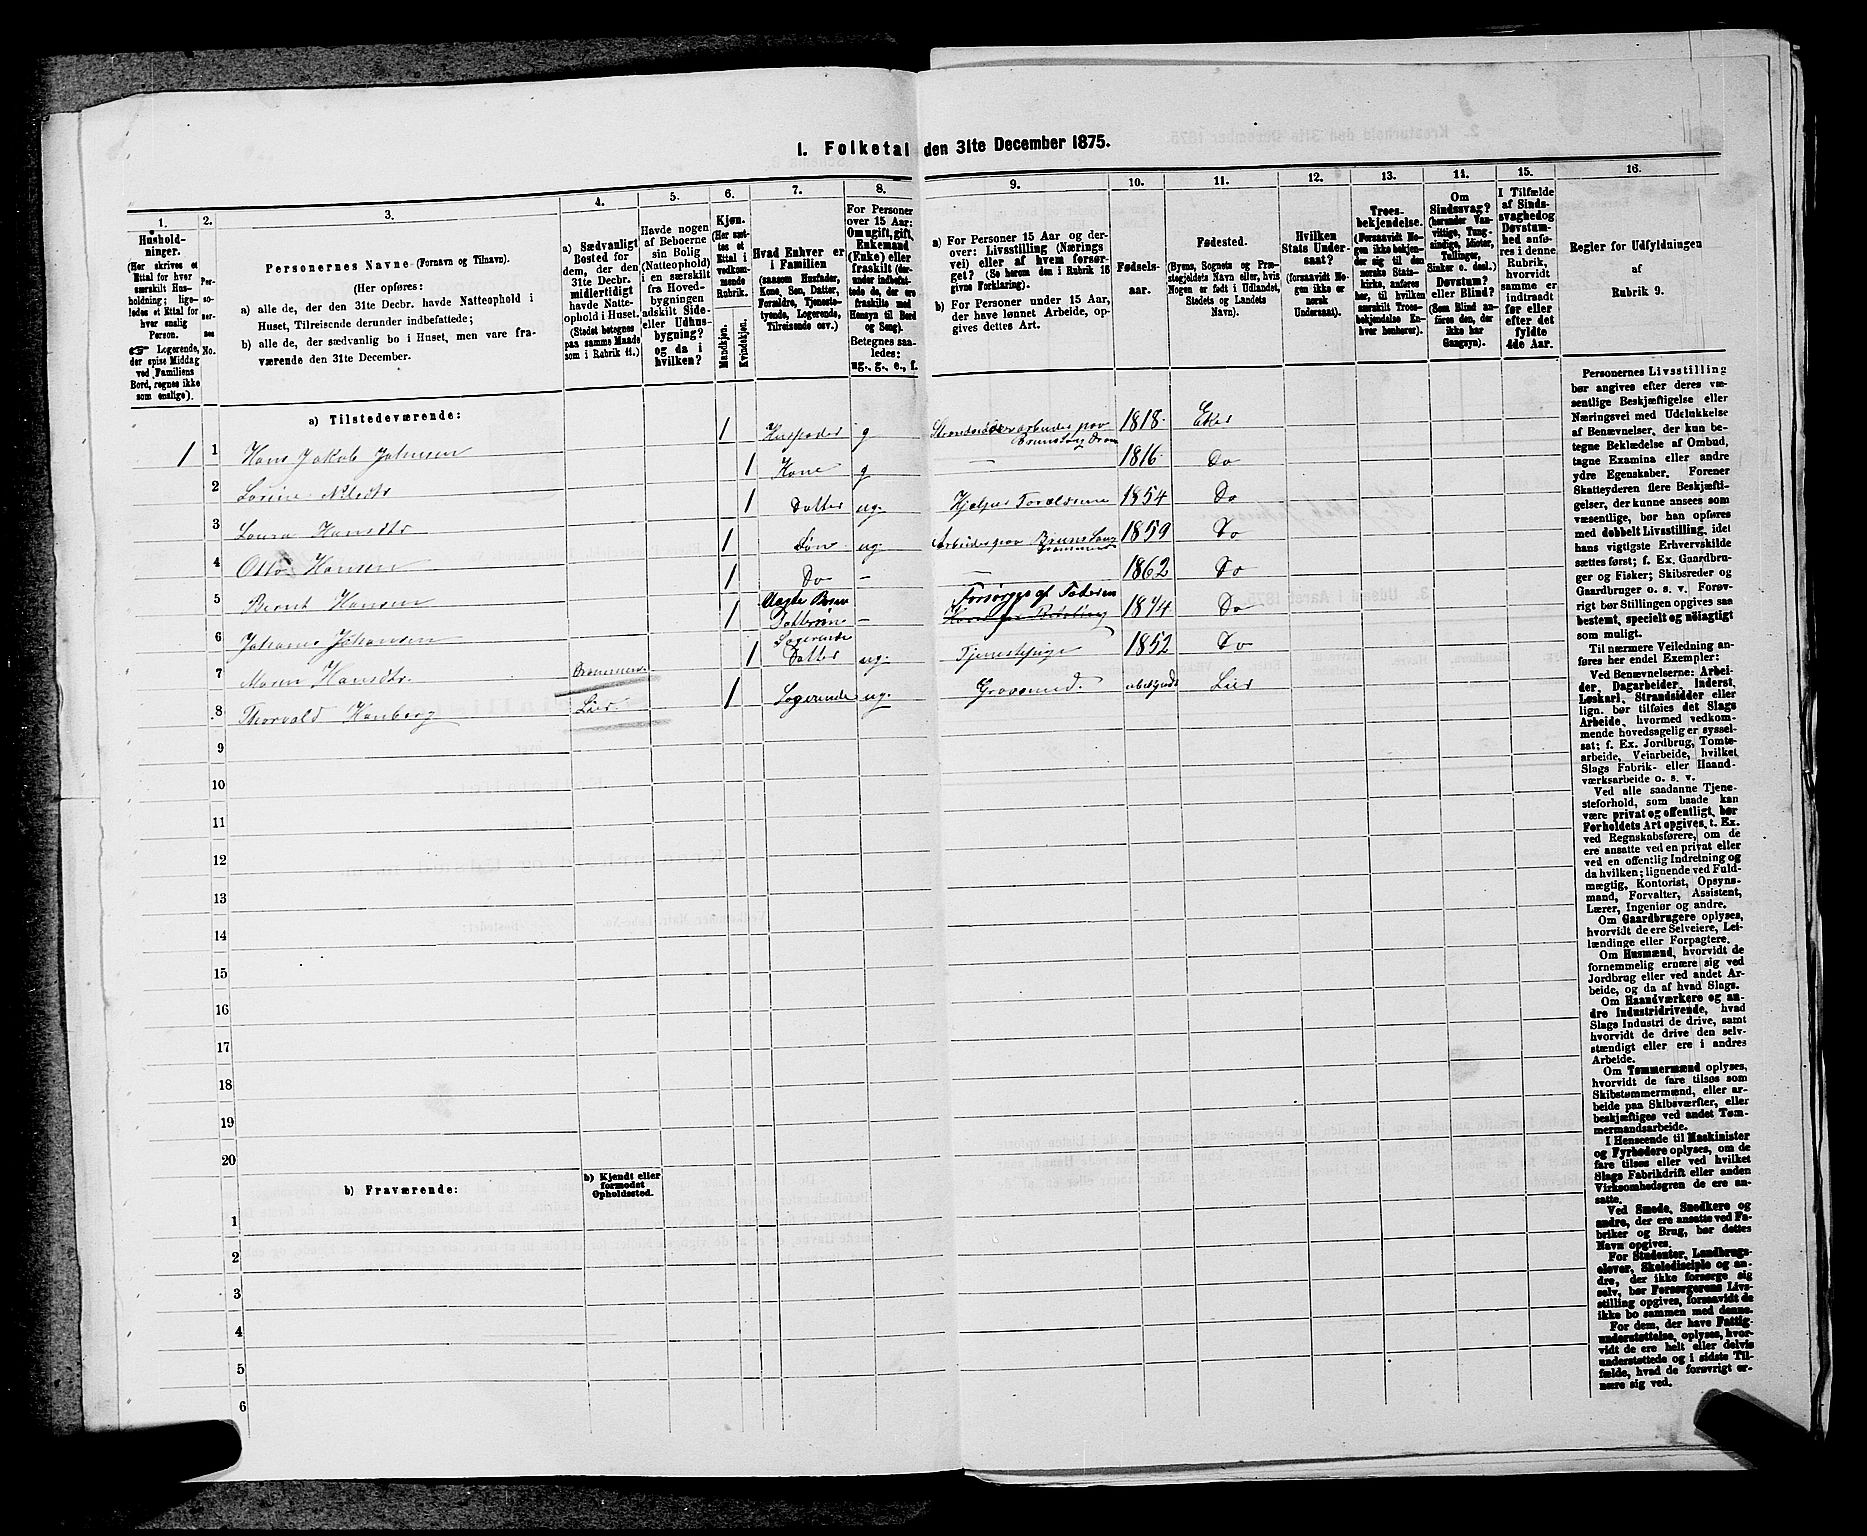 I. Folketal den 31te December 1875.
1. 2. 3. 4. 5. 6. 7. 8. 9. 10. 11. 12. 13. 14. 15. 16.
Hushold-
ninger.
(Her skrives et
Ettal for hver
særskilt Hus-
holdning; lige-
ledes et Ettal for
hver enslig
Person.
☞ Logerende,
der spise Middag
ved Familiens
Bord, regnes ikke
som enslige).
Per-
so-
ner-
nes
No.
Personernes Navne (Fornavn og Tilnavn).
(Her opføres:
a) alle de, der den 31te Decbr. havde Natteophold i
Huset, Tilreisende derunder indbefattede;
b) alle de, der sædvanlig bo i Huset, men vare fra-
værende den 31te December.
a) Sædvanligt
Bosted for
dem, der den
31te Decbr.
midlertidigt
havde Natte-
ophold i Huset.
(Stedet betegnes
paa samme Maade
som i Rubrik 11.)
Havde nogen
af Beboerne
sin Bolig
(Natteophold)
i en særskilt
fra Hoved-
bygningen
adskilt Side-
eller Udhus-
bygning?
og da i
hvilken?
Kjøn.
(Her sæt-
tes et
Ettal i
vedkom-
mende
Rubrik.
Mandkjøn.
Kvindekjøn.
Hvad Enhver er
i Familien
(saasom Husfader,
Kone, Søn, Datter,
Forældre, Tjeneste-
tyende, Logerende,
Tilreisende osv.)
For Personer
over 15 Aar:
Om ugift, gift,
Enkemand
(Enke) eller
fraskilt (der-
under indbefat-
tede de, der ere
fraskilte med
Hensyn til Bord
og Seng).
Betegnes saa-
ledes:
ug., g., e., f.
a) For Personer 15 Aar og der-
over: Livsstilling (Nærings
vei) eller af hvem forsør-
get? (Se herom den i Rubrik 16
givne Forklaring).
b) For Personer under 15 Aar,
der have lønnet Arbeide, op-
gives dettes Art.
Fødsels-
aar.
Fødested.
(Byens, Sognets og Præ-
stegjeldets Navn eller, hvis
Nogen er født i Udlandet,
Stedets og Landets
Navn).
Hvilken
Stats Under-
saat?
(forsaavidt No-
gen ikke er
norsk
Undersaat).
Troes-
bekjendelse.
(Forsaavidt No-
gen ikke bekjen-
der sig til den
norske Stats-
kirke, anføres
her, til hvilken
Troes-
bekjendelse En-
hver henhører).
Om
Sindssvag?
(herunder Van-
vittige, Tung-
sindige, Idioter,
Tullinger,
Sinker o. desl.)
Døvstum?
eller Blind?
(Som Blind an-
føres den, der
ikke har
Gangsyn).
I Tilfælde
af Sinds-
svaghed og
Døvstum-
hed anfø-
res i denne
Rubrik,
hvorvidt
samme er
indtraadt
før eller
efter det
fyldte
4de Aar.
Regler for Udfyldningen
af
Rubrik 9.
a) Tilstedeværende:
1 1 Hans Jakob Johnsen 1 Husfader g 1818 Eker
2 Lorine Nilsdtr 1 Kone g — 1816 Do
3 Laura Hansdtr 1 Datter ug. Hjelper Forældrene 1854 Do
4 Otto Hansen 1 Søn ug. 1859 Do
5 Bernt Hansen 1 Do — — 1862 Do
6 Johannes Johansen 1 Dattersøn — Forsørges af Faderen 1874 Do
7 Maren Hansdtr. Drammen. 1 Logerende Datter ug. Tjenestepige 1852 Do
8 Thorvald Hanberg Lier. 1 Logerende ug. Grovsmed. Lier
9
10
11
12
13
14
15
16
17
18
19
20
b) Fraværende:
b) Kjendt eller
formodet
Opholdssted.
1
2
3
4
5
6
Personernes Livsstilling
bør angives efter deres væ-
sentlige Beskjæftigelse eller
Næringsvei med Udelukkelse
af Benævnelser, der kun be-
tegne Beklædelse af Ombud,
tagne Examina eller andre
ydre Egenskaber. Forener
Skatteyderen flere Beskjæfti-
gelser, der kunne ansees som
væsentlige, bør han opføres
med dobbelt Livsstilling, idet
hans vigtigste Erhvervskilde
sættes først; f. Ex. Gaardbru-
ger og Fisker; Skibsreder og
Gaardbruger o. s. v. Forøv-
rigt bør Stillingen opgives saa
bestemt, specielt og nøiagtigt
som muligt.
Til nærmere Veiledning an-
føres her endel Exempler:
Ved Benævnelserne: Arbei-
der, Dagarbeider, Inderst,
Løskarl, Strandsidder eller
lign. bør tilføies det Slags
Arbeide, hvormed vedkom-
mende hovedsagelig er syssel-
sat; f. Ex. Jordbrug, Tomte-
arbeide, Veiarbeide, hvilket
Slags Fabrik- eller Haand-
værksarbeide o. s. v.
Ved alle saadanne Tjene-
steforhold, som baade kan
være privat og offentligt, bør
Forholdets Art opgives, t. Ex.
ved Regnskabsførere, om de
ere ansatte ved en privat eller
ved en offentlig Indretning og
da hvilken; lignende ved Fuld-
mægtig, Kontorist, Opsyns-
mand, Forvalter, Assistent,
Lærer, Ingeniør og andre.
Om Gaardbrugere oplyses,
hvorvidt de ere Selveiere, Lei-
lændinge eller Forpagtere.
Om Husmænd, hvorvidt de
fornemmelig ernære sig ved
Jordbrug eller ved andet Ar-
beide, og da af hvad Slags.
Om Haandværkere og an-
dre industridrivende, hvad
Slags Industri de drive, samt
hvorvidt de drive den selv-
stændigt eller ere i andres
Arbeide.
Om Tømmermænd oplyses,
hvorvidt de fare tilsøs som
Skibstømmermænd, eller ar-
beide paa Skibsværfter, eller
beskjæftiges ved andet Tøm-
mermandsarbeide.
I Henseende til Maskinister
og Fyrbødere oplyses, om de
fare tilsøs eller ved hvilket
Slags Fabrikdrift eller anden
Virksomhedsgren de ere an-
satte.
Ved Smede, Snedkere og
andre, der ere ansatte ved Fa-
briker og Brug, bør dettes
Navn opgives.
For Studenter, Landbrugs-
elever, Skoledisciple og an-
dre, der ikke forsørge sig
selv, bør Forsørgerens Livs-
stilling opgives, forsaavidt de
ikke bo sammen med denne.
For dem, der have Fattig-
understøttelse, oplyses, hvor-
vidt de ere helt eller delvis
understøttede og i sidste Til-
fælde, hvad de forøvrigt er-
nære sig ved.